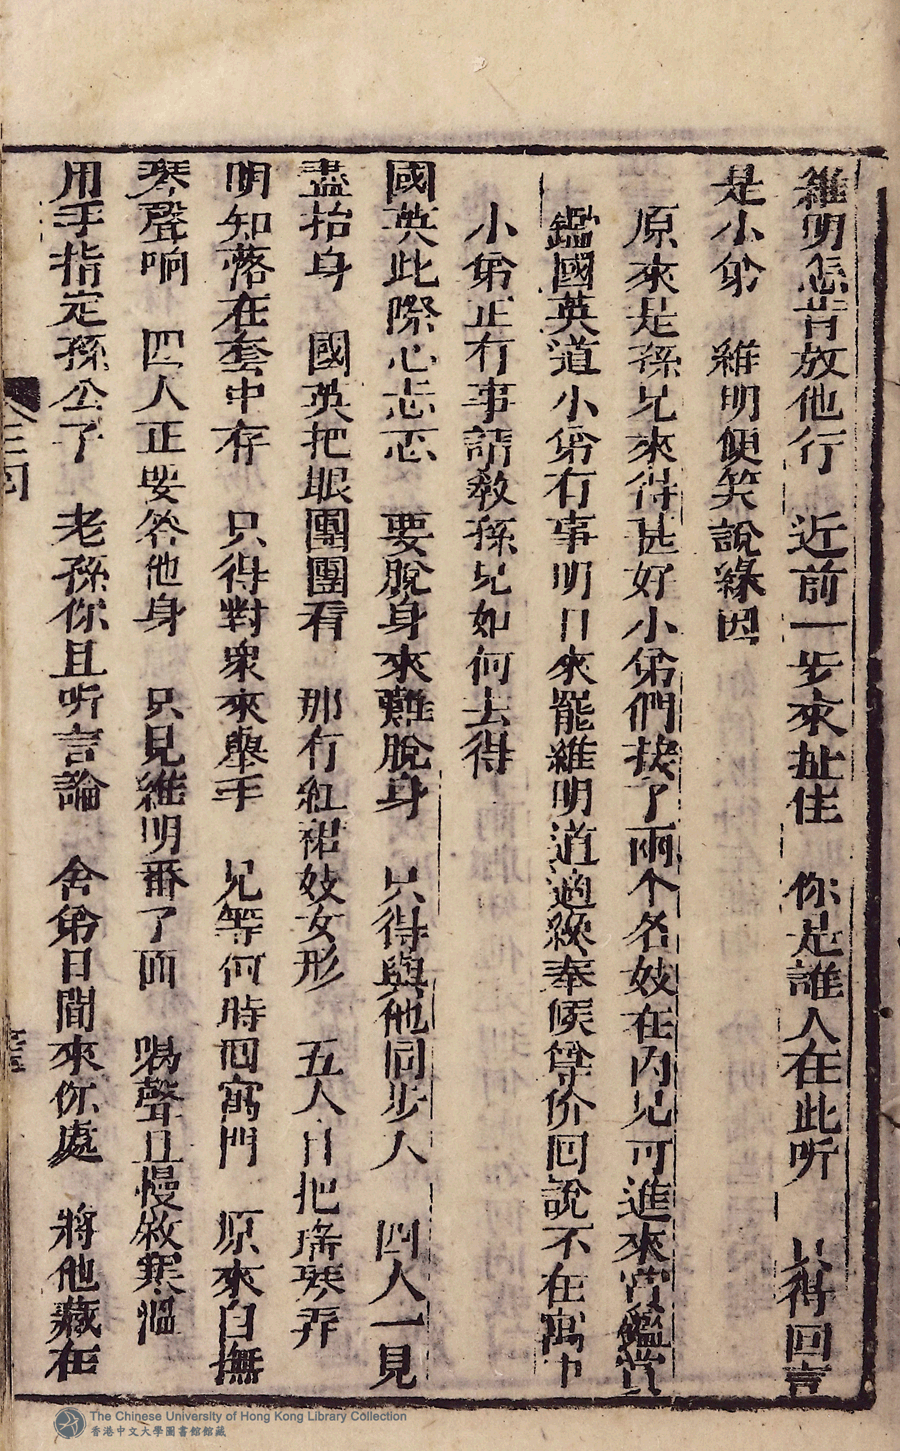 維明怎肯放他行　近前一步來扯住　你是誰人在此听　只得回言
是小弟　維明便笑說緣因
原來是孫兄來得甚好小弟們接了兩个名妓在內兄可進來賞鑑賞
鑑國英道小弟有事明日來罷維明道適纔奉候尊价回說不在寓中
小弟正有事請教孫兄如何去得
國英此際心忐忑　要脫身來難脫身　只得與他同步人　四人一見
盡抬身　國英把眼團團看　那有紅裙妓女形　五人日把瑤琴弄
明知落在套中存　只得對衆來舉手　兄等何時囬寓門　原來自撫
琴聲响　四人正要答他身　只見維明番了面　喝聲且慢敘寒溫
用手指定孫公子　老孫你且听言論　舍弟日間來你處　將他藏在
The Chinese University of Hong Kong Library Collection
香港中文大學圖書館館藏